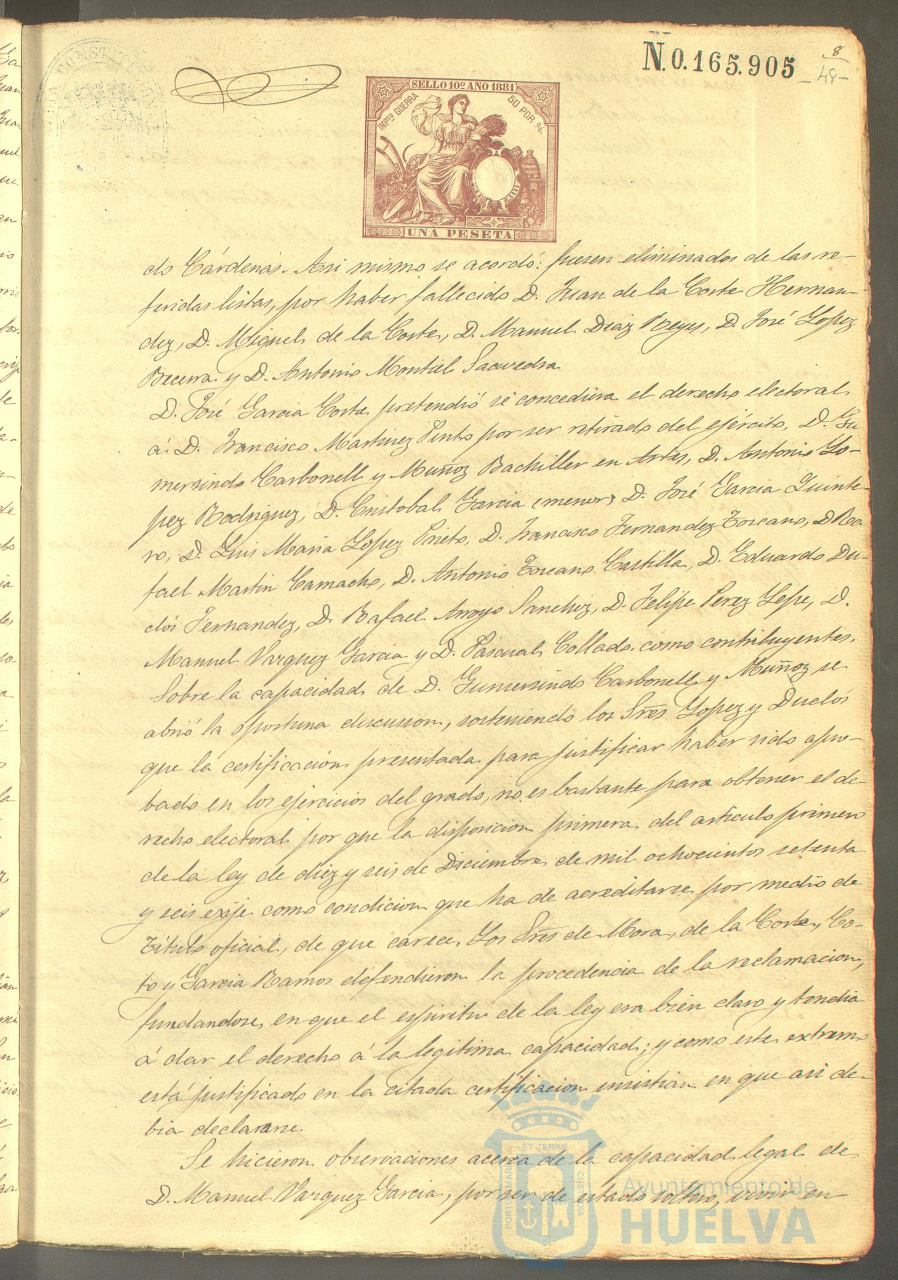 N.0.165.905
8
-48-
SELLO 10º AÑO 1881
IMPTO GUERRA
50 POR %
UNA PESETA
do Cárdenas. Asi mismo se acordó: fuesen eliminados de las re-
feridas listas, por haber fallecido D. Juan de la Corte Hernan-
dez, D. Miguel de la Corte, D. Manuel Diaz Reyes, D. José Lopez
Becerra y D. Antonio Montiel Saavedra
D. José Garcia Corte pretendió se concediera el derecho electoral
á D. Francisco Martinez Pinto por ser retirado del ejército, D. Gu-
mersindo Carbonell y Muñoz Bachiller en Artes, D. Antonio Lo-
pez Rodriguez, D. Cristobal Garcia (menor), D. José Garcia Quinte-
ro, D. Luis Maria Lopez Prieto, D. Francisco Fernandez Toscano, D. Ra-
fael Martin Camacho, D. Antonio Toscano Castilla, D. Eduardo Du-
clós Fernandez, D. Rafael Arroyo Sanchez, D. Felipe Perez Lepe, D.
Manuel Vazquez Garcia y D. Pascual Collado como contribuyentes.
Sobre la capacidad de D. Gumersindo Carbonell y Muñoz se
abrió la oportuna discusion, sosteniendo los Sres Lopez y Duclós
que la certificacion presentada para justificar haber sido apro-
bado en los ejercicios del grado, no es bastante para obtener el de-
recho electoral por que la disposicion primera del articulo primero
de la ley de diez y seis de Diciembre de mil ochocientos setenta
y seis exije como condicion que ha de acreditarse por medio de
Titulo oficial, de que carece. Los Sres de Mora, de la Corte, Co-
to y Garcia Ramos defendieron la procedencia de la reclamacion,
fundandose en que el espiritu de la ley era bien claro y tendia
á dar el derecho á la legitima capacidad; y como este extremo
está justificado en la citada certificacion insistian en que asi de-
bia declararse.
Se hicieron observaciones acerca de la capacidad legal de
D. Manuel Vazquez Garcia, por ser de estado soltero, vivir en
Ayuntamiento de
HUELVA